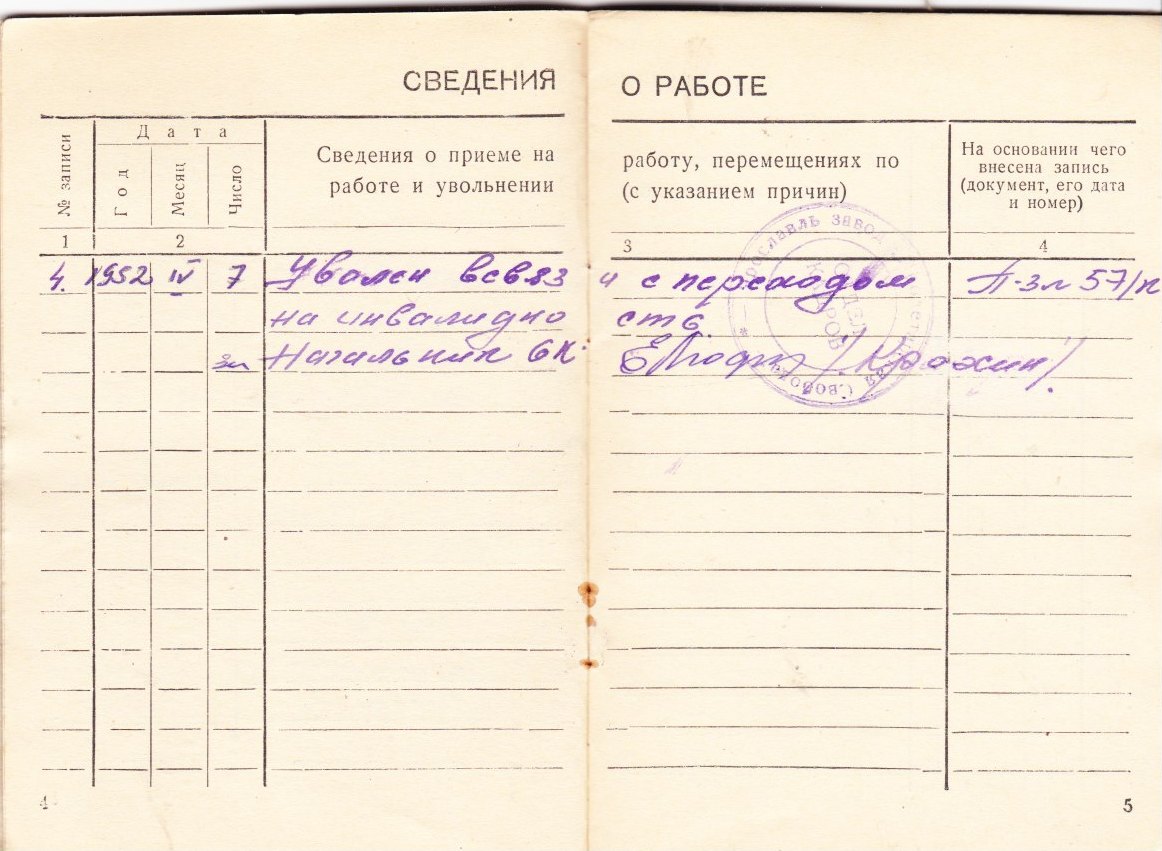 СВЕДЕНИЯ О РАБОТЕ
№ записи
Дата
Год
Месяц
Число
Сведения о приеме на работу, перемещениях по
работе и увольнении (с указанием причин)
На основании чего
внесена запись
(документ, его дата
и номер)
1 2 3 4
4. 1952 IV 7 Уволен всвязи с переходом П-зл 57/к
на инвалидность
зл Начальник ОК
ОТДЕЛ
КАДРОВ
4
5